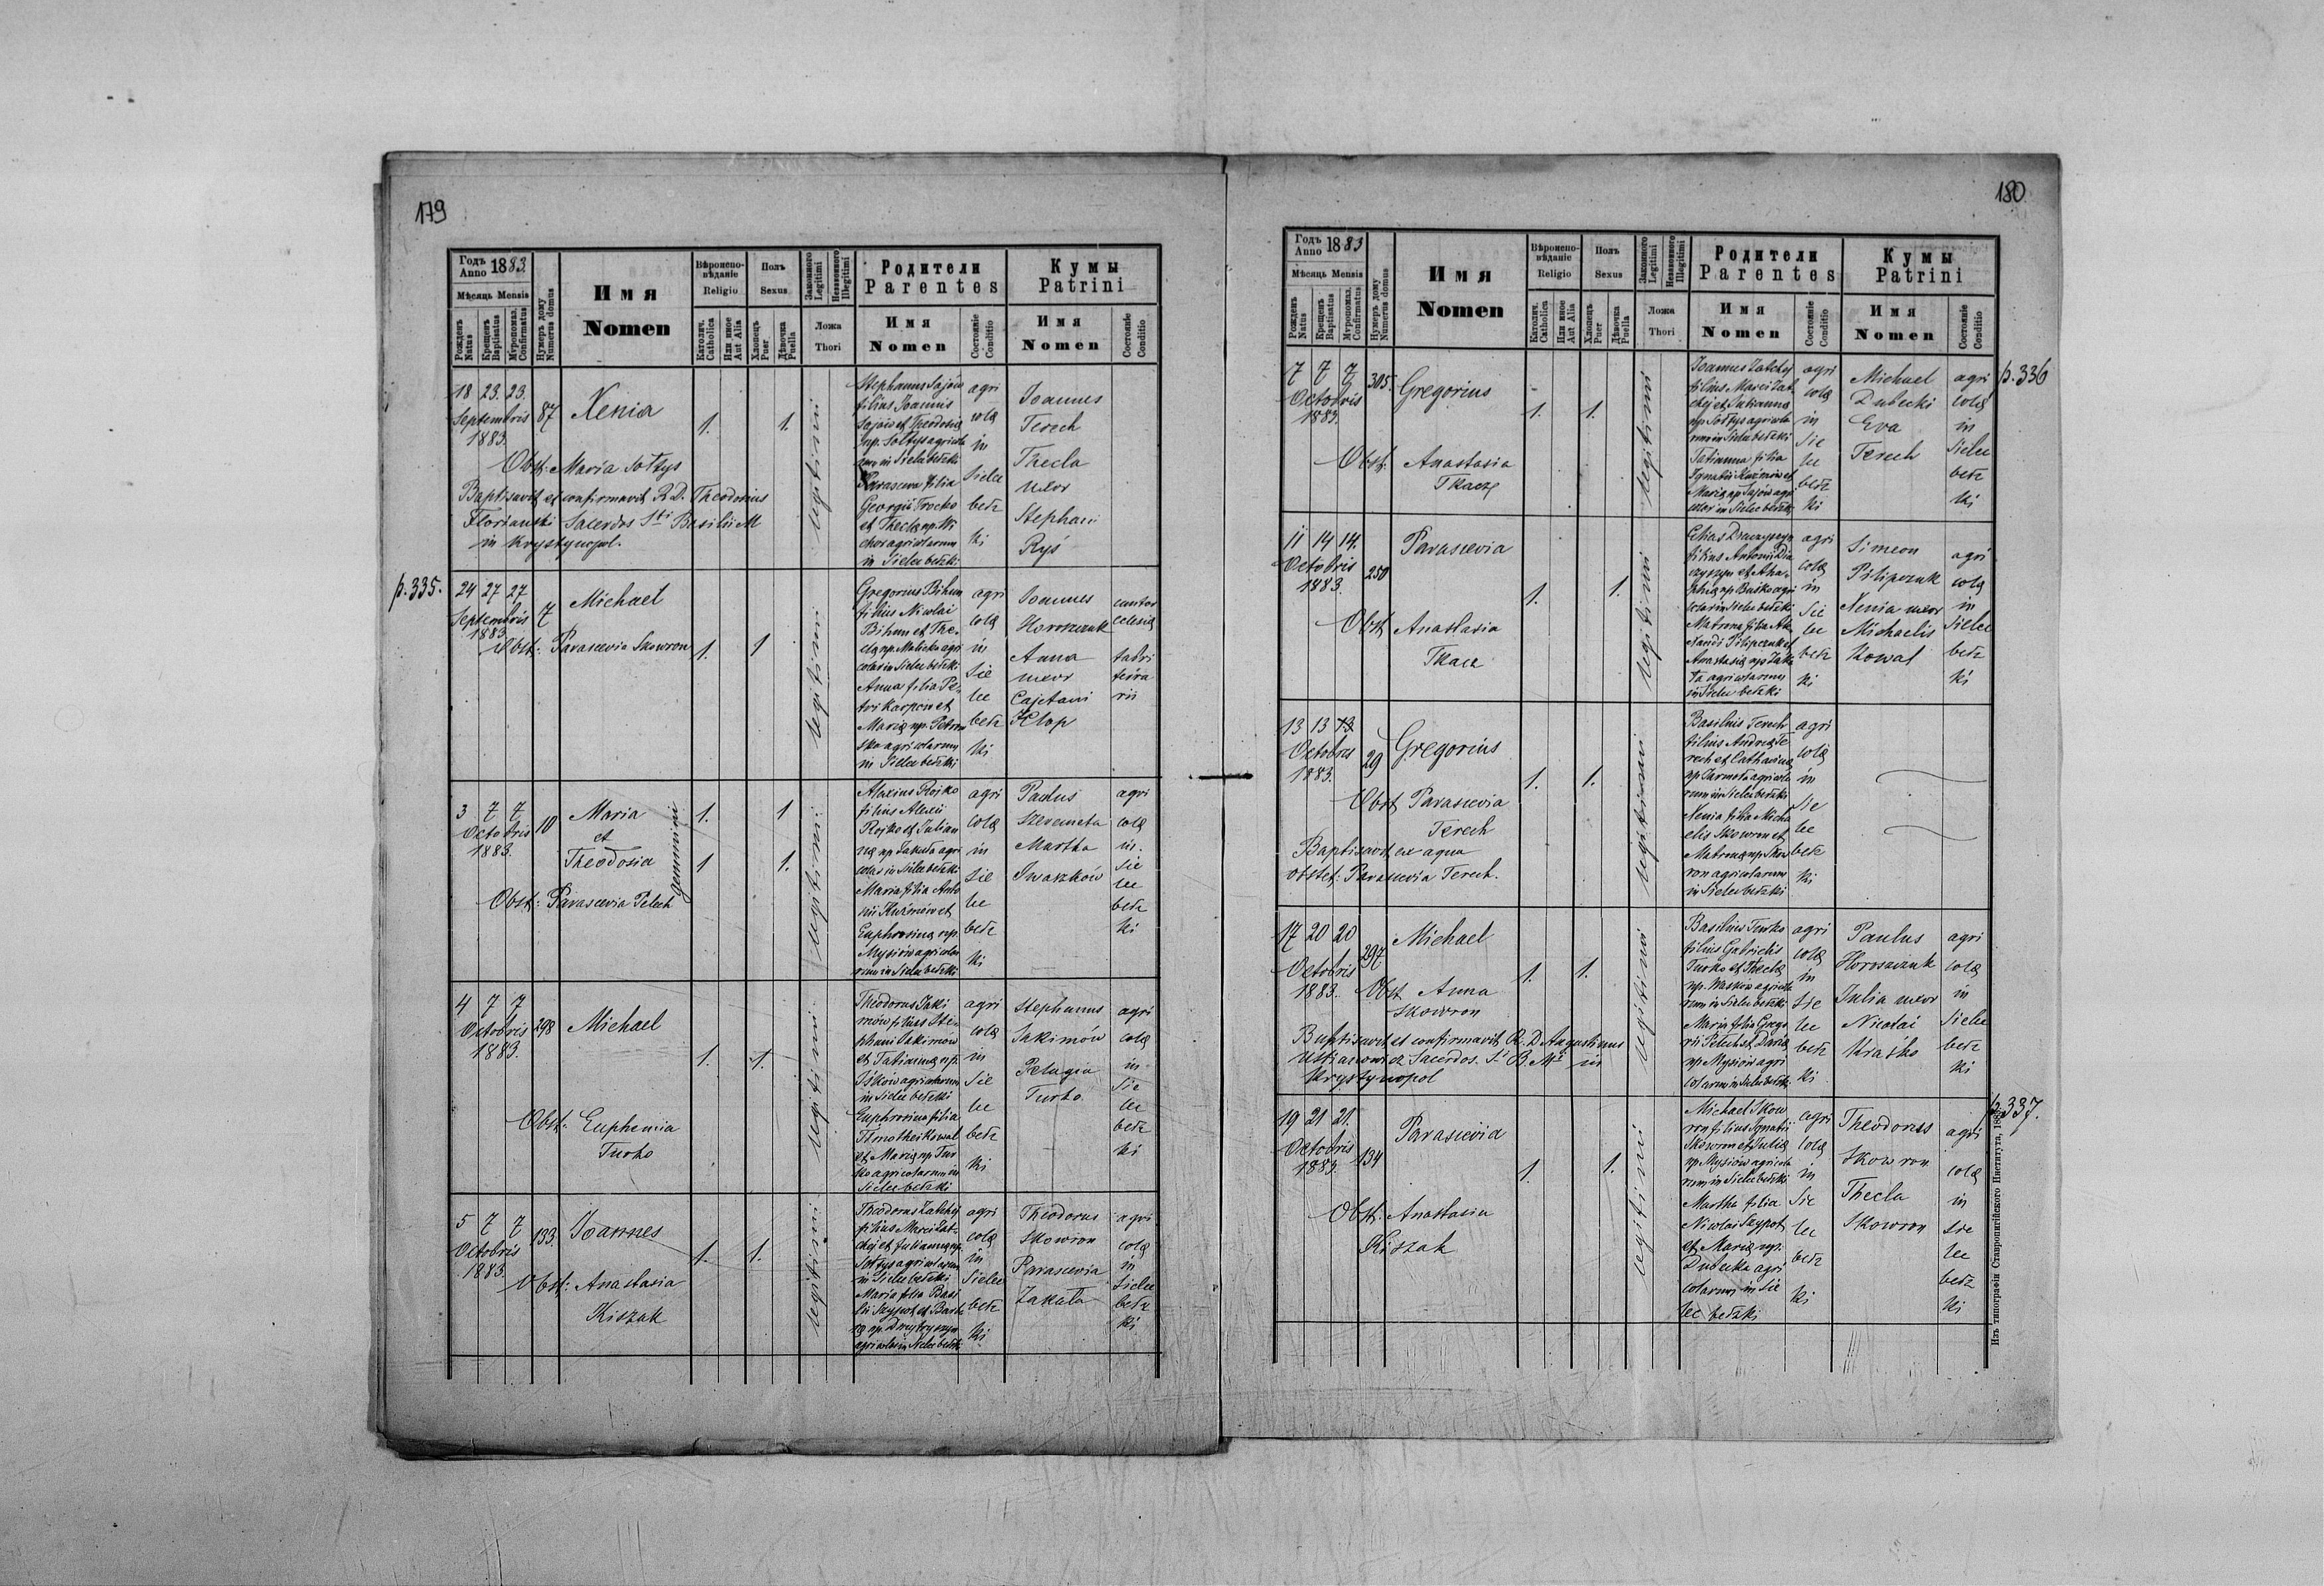 179
Годъ Anno 1883.
Мѣсяць Mensis
Рожденъ Natus
Крещенъ Baptisatus
Мѵропомаз. Confirmatus
Нумеръ дому Numerus domus
Имя
Nomen
Вѣроисповѣданіе
Religio
Католич. Catholica
Или иное Aut Alia
Полъ
Sexus
Хлопець Puer
Дѣвочка Puella
Законного Legitimi
Незаконного Illegitimi
Ложа
Thori
Родители
Parentes
Имя
Nomen
Состояніе Conditio
Кумы
Patrini
Имя
Nomen
Состояніе Conditio
18 23. 23.
Septembris
1883.
87
Xenia
1.
1.
legitimi
Obst: Maria Sołtys
Baptisavit et confirmavit R. D. Theodosius
Florianski Sacerdos Sti Basilii M
in Krystynopol.
Stephanus Sajów
filius Joannis
Sajów et Theodosiæ
np. Sołtys agricola
rum in Sielec bełzki
Parasceva filia
Georgii Trocko
et Theclæ np.
agricolarum
in Sielec bełzki
agri
colæ
in
Sielec
bełz
ki
Joannes
Terech
Thecla
uxor
Stephani
Ryś
p. 335.
24 27 27
Septembris
1883
7
Michael
Obst: Parascevia Skowron
1.
1
legitimi
Gregorius Bihun
filius Nicolai
Bihun et The-
clæ np. Malicka agri
colar in Sielec bełzki
Anna filia Pe-
tri Karpow et
Mariæ np.
agricolarum
in Sielec bełzki
agri
colæ
in
Sie
lec
bełz
ki
Joannes
Horoszczuk
Anna
uxor
Cajetani
Klop
cantor
eclesiæ
fabri
ferra
rii
3 7 7
Octobris
1883.
10
Maria
et
Theodosia
gemmini
1. 1
1 1.
Obst: Parascevia Pelech
legitimi
Alexius Rojko
filius Alexii
Rojko et Julian
næ np Zakuła agri
colar in Sielec bełzki
Maria filia Anto
nii Kuźmów et
Euphrosinæ np.
Mysiów agricola
rum in Sielec bełzki
agri
colæ
in
Sie
lec
bełz
ki
Paulus
Szeremeta
Martha
Iwaszków
agri
colæ
in.
Sie
lec
bełz
ki
4 7 7
Octobris
1883.
298
Michael
1.
1.
Obst: Euphemia
Turko
legitimi
Theodorus Jaki
mów filius Ste-
phani Jakimów
et Tatiannæ np.
Iśków agricolarum
in Sielec bełzki
Euphrosina filia
Timothei Kowal
et Mariæ np Tur
ko agricolarum in
Sielec bełzki
agri
colæ
in
Sie
lec
bełz
ki
Stephanus
Jakimów
Pelagia
Turko
agri
colæ
in
Sie
lec
bełz
ki
5 7 7
Octobris
1883.
133.
Joannes
1.
1.
Obst: Anastasia
Kiszak
legitimi
Theodorus Zatchej
filius Marci Zat-
chej et Juliannæ np.
Sołtys agricolarum
in Sielec bełzki
Maria filia Basi
lii Szypot et Barba
ræ np. Dmytryszyn
agricolar in Sielec bełzki
agri
colæ
in
Sielec
bełz
ki
Theodorus
Skowron
Parascevia
Zakuła
agri
colæ
in
Sielec
bełz
ki
180
Годъ Anno 1883
Мѣсяць Mensis
Рожденъ Natus
Крещенъ Baptisatus
Мѵропомаз. Confirmatus
Нумеръ дому Numerus domus
Имя
Nomen
Вѣроисповѣданіе
Religio
Католич. Catholica
Или иное Aut Alia
Полъ
Sexus
Хлопець Puer
Дѣвочка Puella
Законного Legitimi
Незаконного Illegitimi
Ложа
Thori
Родители
Parentes
Имя
Nomen
Состояніе Conditio
Кумы
Patrini
Имя
Nomen
Состояніе Conditio
7 7 7
Octobris
1883.
305.
Gregorius
1.
1.
Obst: Anastasia
Tkacz
legitimi
Joannes Zatchej
filius Marci Zat
chej et Juliannæ
np Sołtys agricola
rum in Sielec bełzki
Tatianna filia
Ignatii Kuźmów et
Mariæ np Sajów agri
colar in Sielec bełzki
agri
colæ
in
Sie
lec
bełz
ki
Michael
Dubecki
Eva
Terech
agri
colæ
in
Sielec
bełz
ki
p. 336
11 14 14.
Octobris
1883.
250
Parascevia
1.
1.
Obst Anastasia
Tkacz
legitimi
Elias
filius Antonii
et Aha-
phiæ np Buśko agri
colar in Sielec bełzki
Matrona filia Ale
xandri Pilipczuk et
Anastasiæ np Zaku
ła agricolarum
in Sielec bełzki
agri
colæ
in
Sie
lec
bełz
ki
Simeon
Pilipczuk
Xenia uxor
Michaelis
Kowal
agri
colæ
in
Sielec
bełz
ki
13 13 13
Octobris
1883.
29
Gregorius
1.
1.
Obst Parascevia
Terech
Baptisavit ex aqua
obstet: Parascevia Terech.
legitimi
Basilius Terech
filius Andreæ Te
rech et Catharinæ
np Jarmoła agricola
rum in Sielec bełzki
Xenia filia Micha
elis Skowron et
Matronæ np Skow
ron agricolarum
in Sielec bełzki
agri
colæ
in
Sie
lec
bełz
ki
17 20 20
Octobris
1883.
297
Michael
1.
1.
Obst Anna
Skowron
Baptisavit et confirmavit R. D. Augustinus
Ustianowicz Sacerdos. St B. Mi in
Krystynopol
legitimi
Basilius Turko
filius Gabrielis
Turko et Theclæ
np. Waskow agricola
rum in Sielec bełzki
Maria filia Grego
rii Pelech et Dariæ
np Mysiów agri
colarum in Sielec bełzki
agri
colæ
in
Sie
lec
bełz
ki
Paulus
Horoszczuk
Julia uxor
Nicolai
Kraśko
agri
colæ
in
Sielec
bełz
ki
19 21 21.
Octobris
1883.
134
Parascevia
1.
1.
Obst: Anastasia
Kiszak
legitimi
Michael Skow
ron filius Ignatii
Skowron et Juliæ
np Mysiów agricola
rum in Sielec bełzki
Martha filia
Nicolai Szypot
et Mariæ np.
Dubecka agri
colarum in Sie
lec bełzki
agri
colæ
in
Sie
lec
bełz
ki
Theodorus
Skowron
Thecla
Skowron
agri
colæ
in
Sie
lec
bełz
ki
p. 337.
Изъ типографіи Ставропигійского Института,